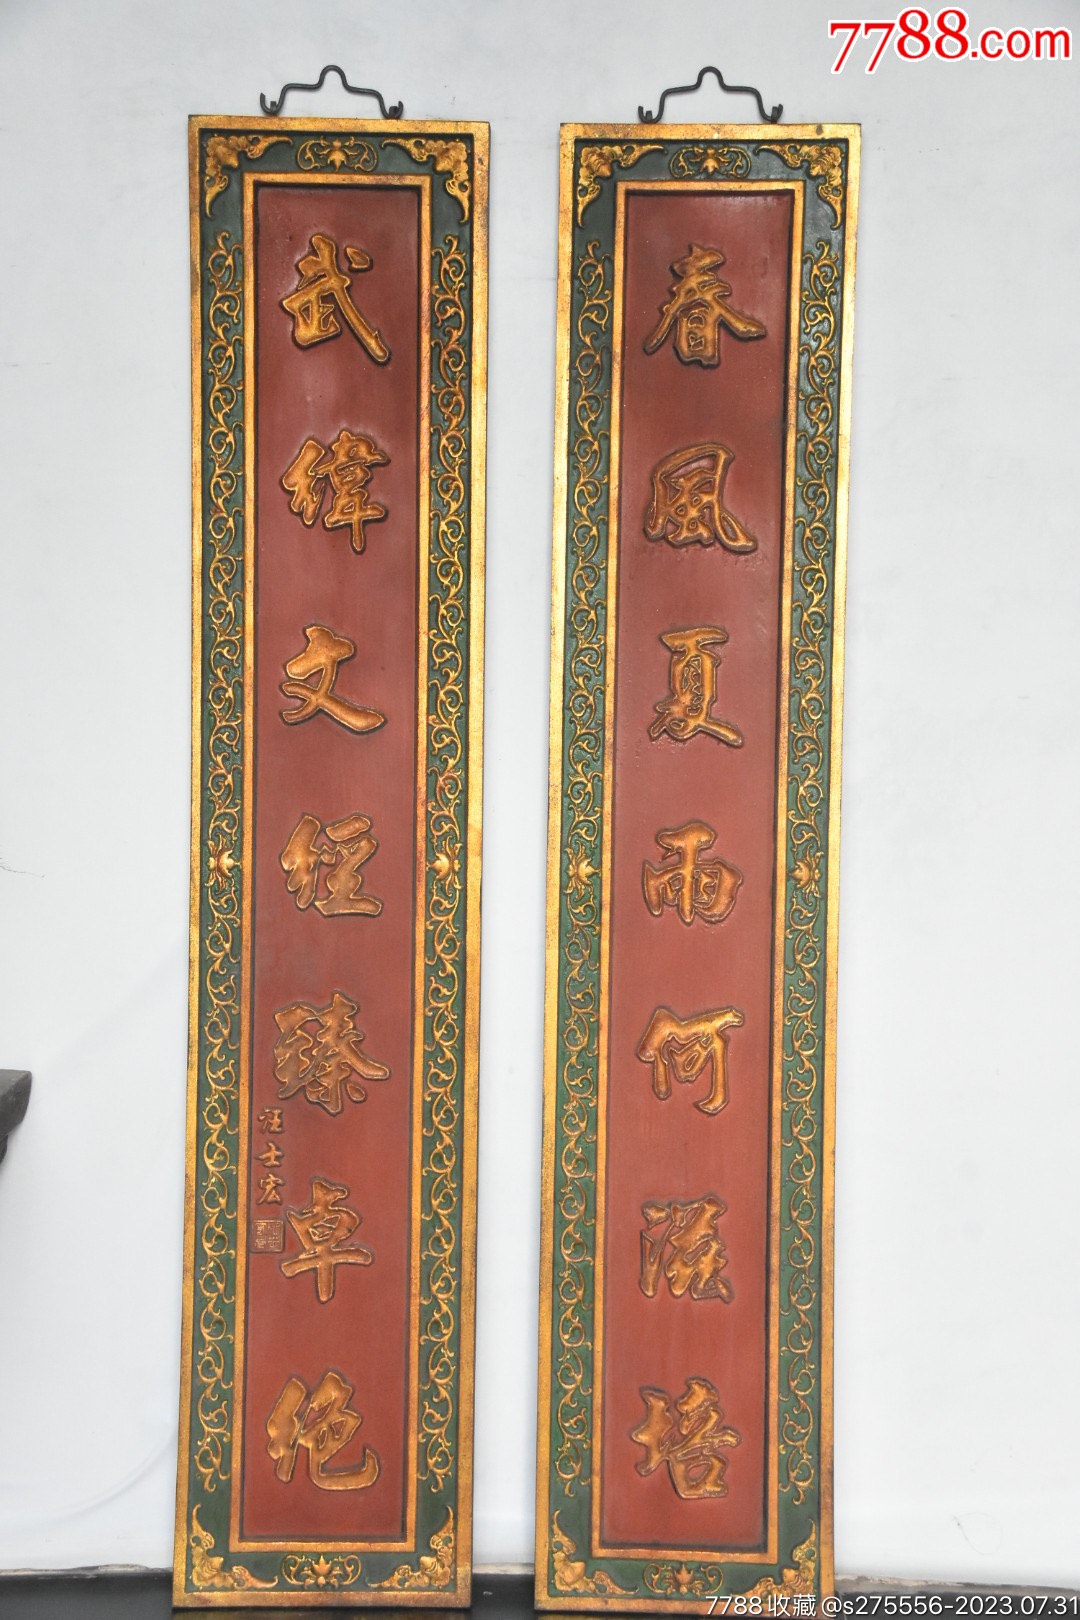 7788.com
春風夏雨何滋培
武緯文經臻卓絶
汪士宏
7788收藏@s275556-2023.07.31